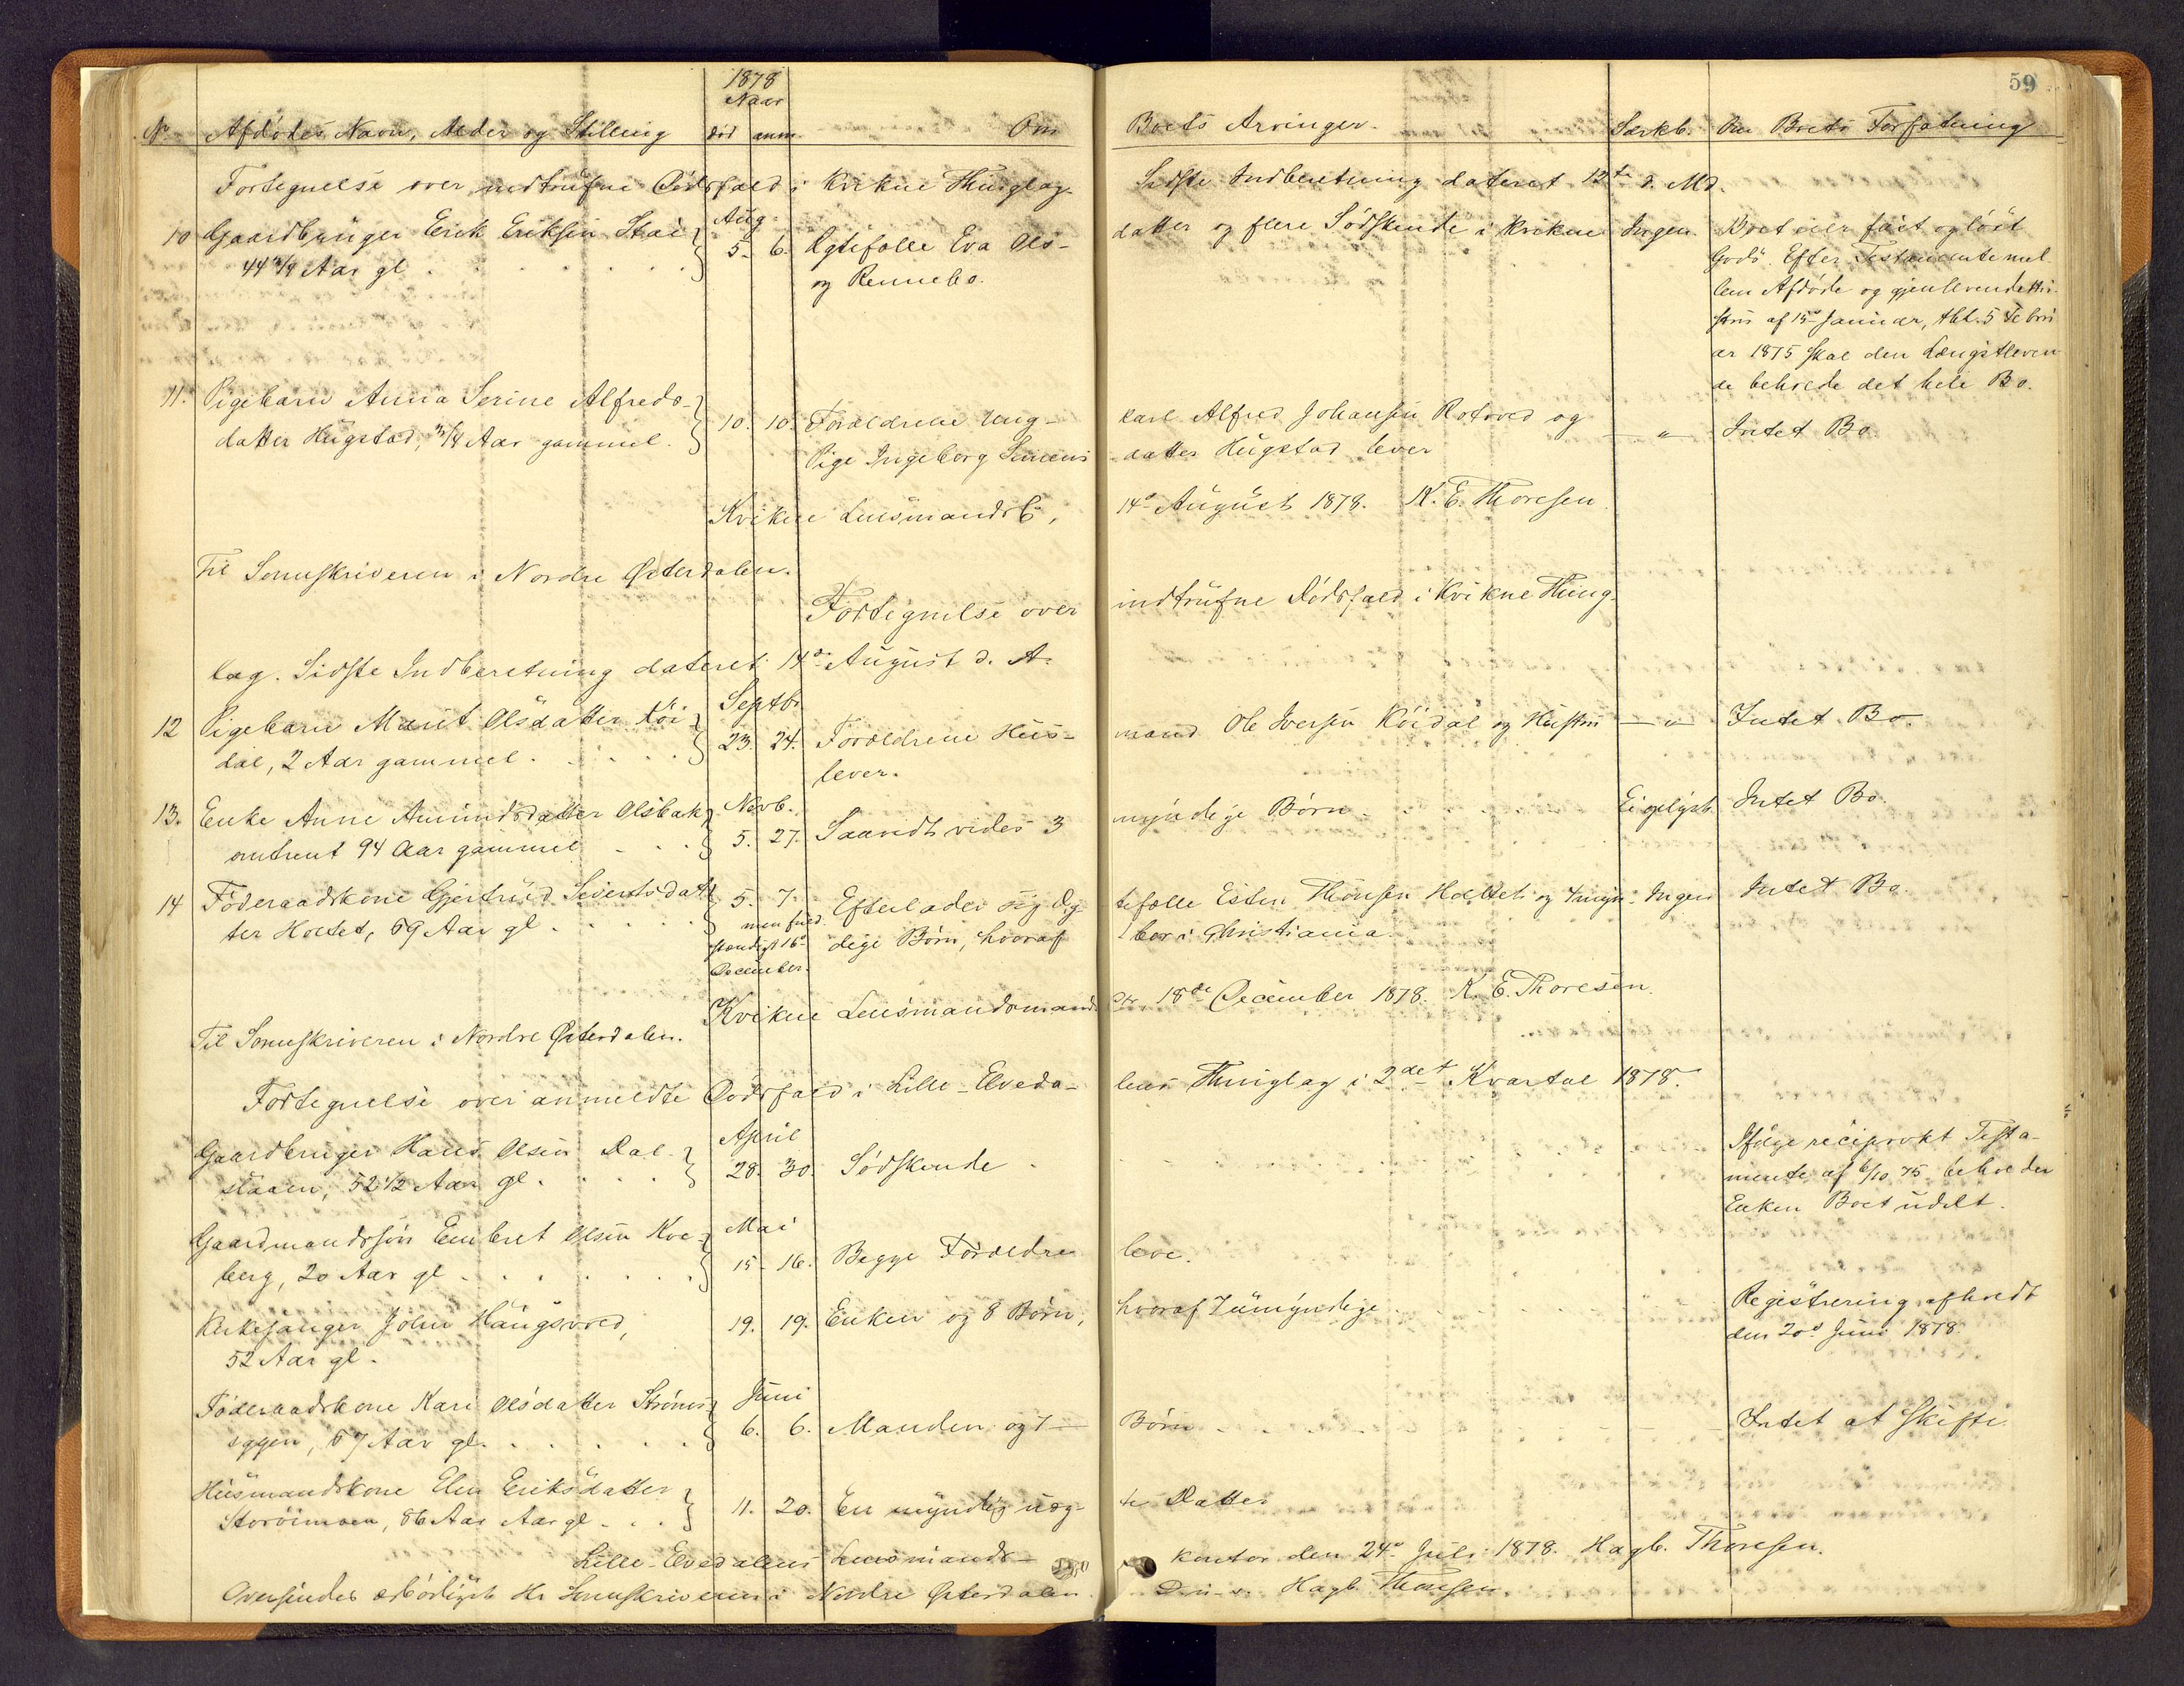 59
1878
Naar
No Afdødes Navn, Alder og Stilling død anm. Om Boets Arvinger. Særkb. Om Boets Forfatning
Fortegnelse over indtrufne Dødsfald i Kvikne Thinglag. Sidste Indberetning dateret 12te d. Md.
Aug.
10 Gaardbruger Erik Eriksen Stai 5. 6. Ægtefælle Eva Ols- datter og flere Sødskende i Kvikne Ingen. Boet eier fast og løst
44 3/4 Aar gl. og Rennebo. Gods. Efter Testamente mel-
lem Afdøde og gjenlevende Hu-
stru af 15de Januar, thl. 5 Febru
ar 1875 skal den Længstleven-
de beholde det hele Bo.
11. Pigebarn Anna Serine Alfreds-
datter Hugstad, 3/4 Aar gammel. 10. 10. Forældrene Ung- karl Alfred Johansen Rotved og — " — Intet Bo
Pige Ingeborg Simens datter Hugstad lever
Kvikne Lensmandsb, 14de August 1878. K. E. Thoresen.
Til Sorenskriveren i Nordre Østerdalen.
Fortegnelse over indtrufne Dødsfald i Kvikne Thing-
lag. Sidste Indberetning dateret 14de August d. A.
Septbr.
12 Pigebarn Marit Olsdatter Køi-
dal, 2 Aar gammel. 23. 24. Forældrene Hus- mand Ole Iversen Køidal og Hustru — " — Intet Bo.
lever.
13. Enke Anne Amundsdatter Olsbak Novb.
omtrent 94 Aar gammel 5. 27. Saavidt vides 3 myndige Børn. Ei oplyst. Intet Bo.
14 Føderaadskone Gjertrud Sivertsdat- 5. 7. Efterlader sig Æg- tefælle Esten Thoresen Hoeltet og 4 myn- Ingen Intet Bo.
ter Hoeltet, 69 Aar gl. men fuld- dige Børn, hvoraf 1 bor i Christiania.
stændigt 16de
December.
Kvikne Lensmandsmand- 18de December 1878. K. E. Thoresen.
Til Sorenskriveren i Nordre Østerdalen.
Fortegnelse over anmeldte Dødsfald i Lille-Elveda- lens Thinglag i 2det Kvartal 1878.
April
Gaardbruger Hans Olsen Dal- 28. 30. Sødskende Ifølge reciprokt Testa-
staaen, 52 1/2 Aar gl. mente af 6/10 75 beholder
Enken Boet udelt.
Mai
Gaardmandssøn Embret Olsen Kve-
berg, 20 Aar gl. 15. 16. Begge Forældre leve.
Kirkesanger John Haugsvred, 19. 19. Enken og 8 Børn, hvoraf 7 umyndige Registrering afholdt
52 Aar gl. den 20de Juni 1878.
Føderaadskone Kari Olsdatter Strøms- Juni
eggen, 67 Aar gl. 6. 6. Manden og 7 — Børn Intet at Skifte.
Husmandskone Elen Eriksdatter
Storøimoen, 86 Aar Aar gl. 11. 20. En myndig uæg- te Datter
Lille-Elvedalens Lensmands- kontor den 24de Juli 1878. Hagb. Thoresen.
Oversendes ærbødigst Hr Sorenskriveren i Nordre Østerdalen D. u. s. Hagb. Thoresen.